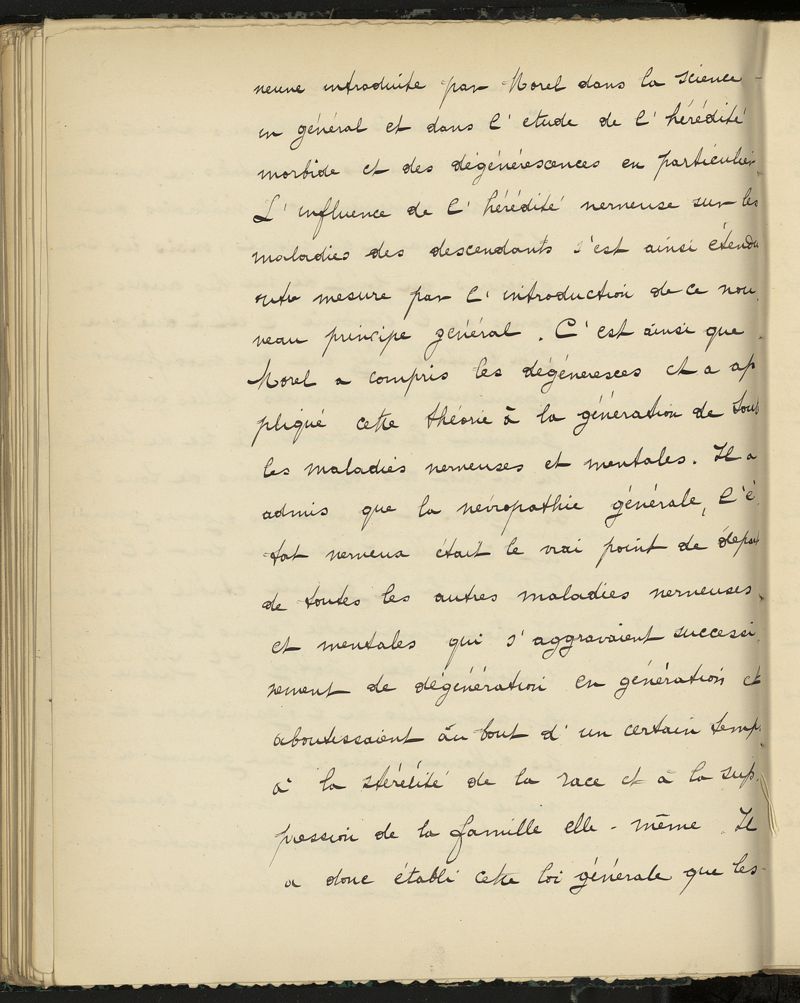 neuve introduite par Morel dans la science
en général et dans l'etude de l'hérédité
morbide et des dégénérescences en particulier.
L'influence de l'hérédité nerveuse sur les
maladies des descendants s'est ainsi étendu
outre mesure par l'introduction de ce nou
veau principe général. C'est ainsi que
Morel a compris les dégénéresces et a ap
pliqué cette théorie à la génération de tout
les maladies nerveuses et mentales. Il a
admis que la nevropathie générale, l'é
tat nerveux était le vrai point de dépat
de toutes les autres maladies nerveuses
et mentales qui s'aggravaient successi
vement de dégénération en génération et
aboutissaient au bout d'un certain temp
à la stérélité de la race et à la sup
pression de la famille elle-même. Il
a donc établi cette loi générale que les